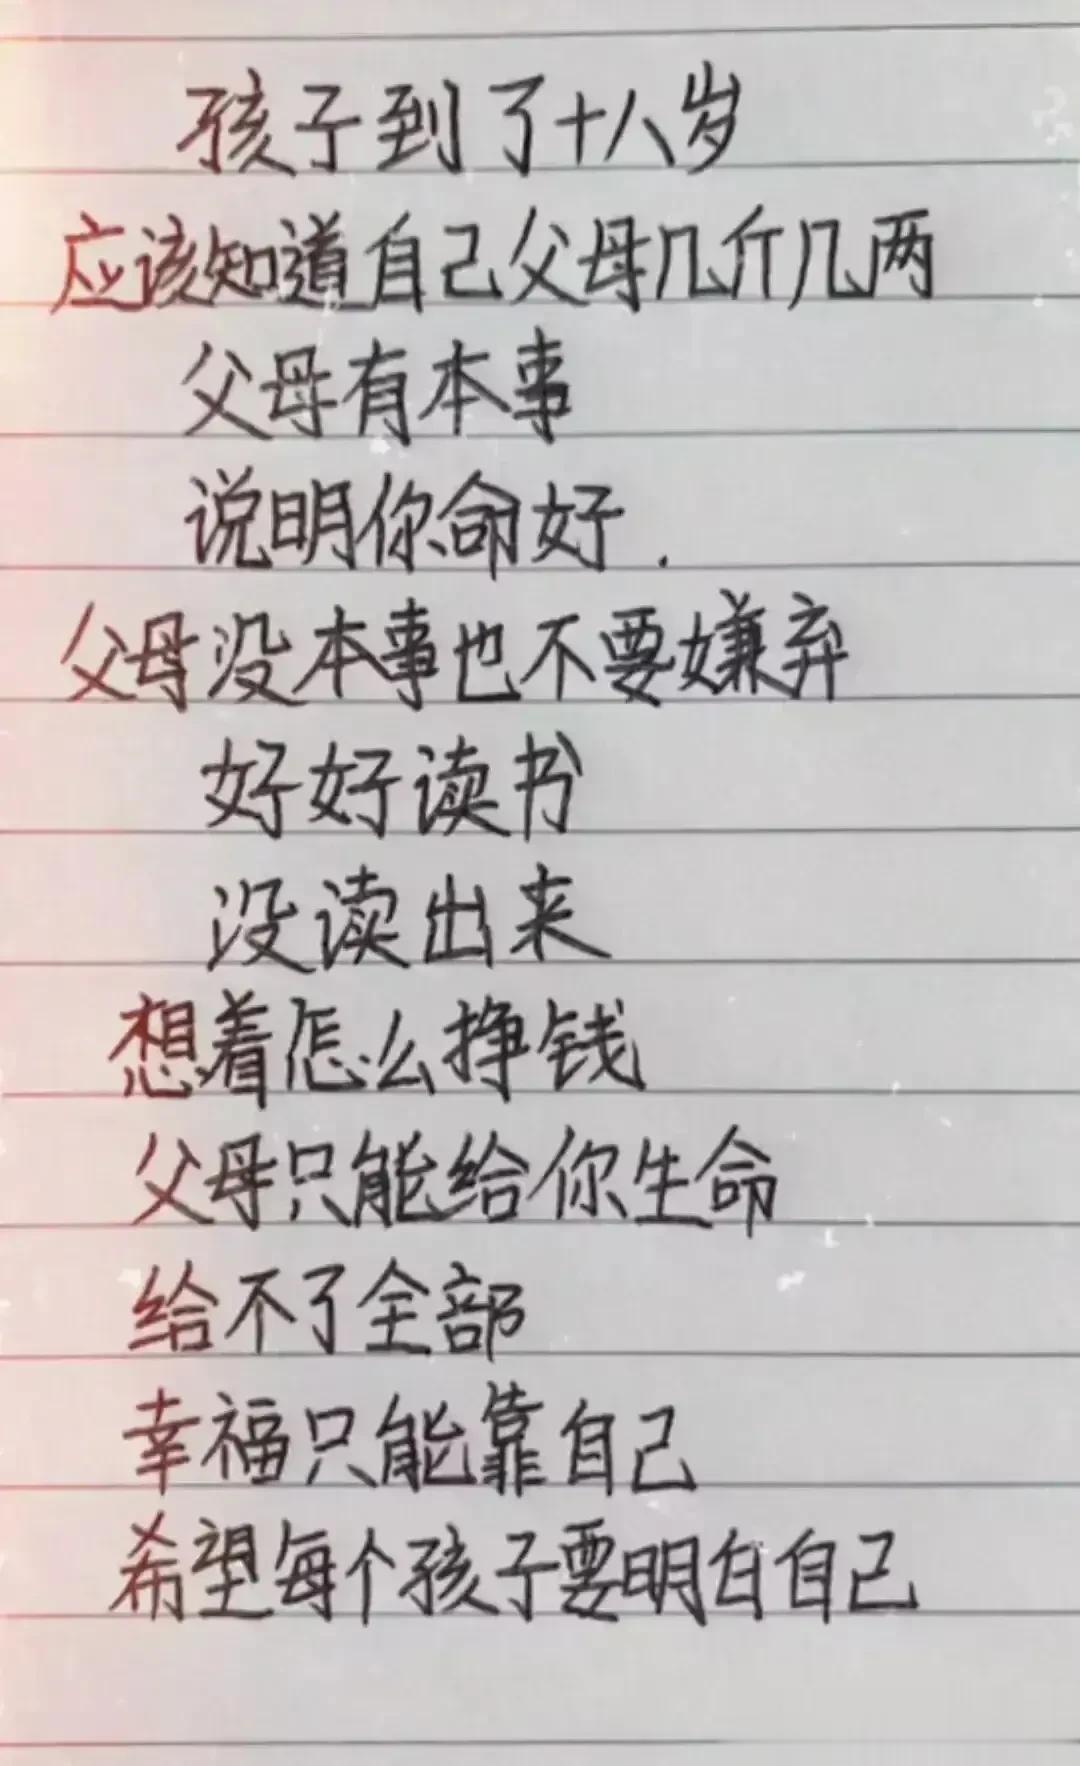 孩子到了十八岁
应该知道自己父母几斤几两
父母有本事
说明你命好.
父母没本事也不要嫌弃
好好读书
没读出来
想着怎么挣钱
父母只能给你生命
给不了全部
幸福只能靠自己
希望每个孩子要明白自己